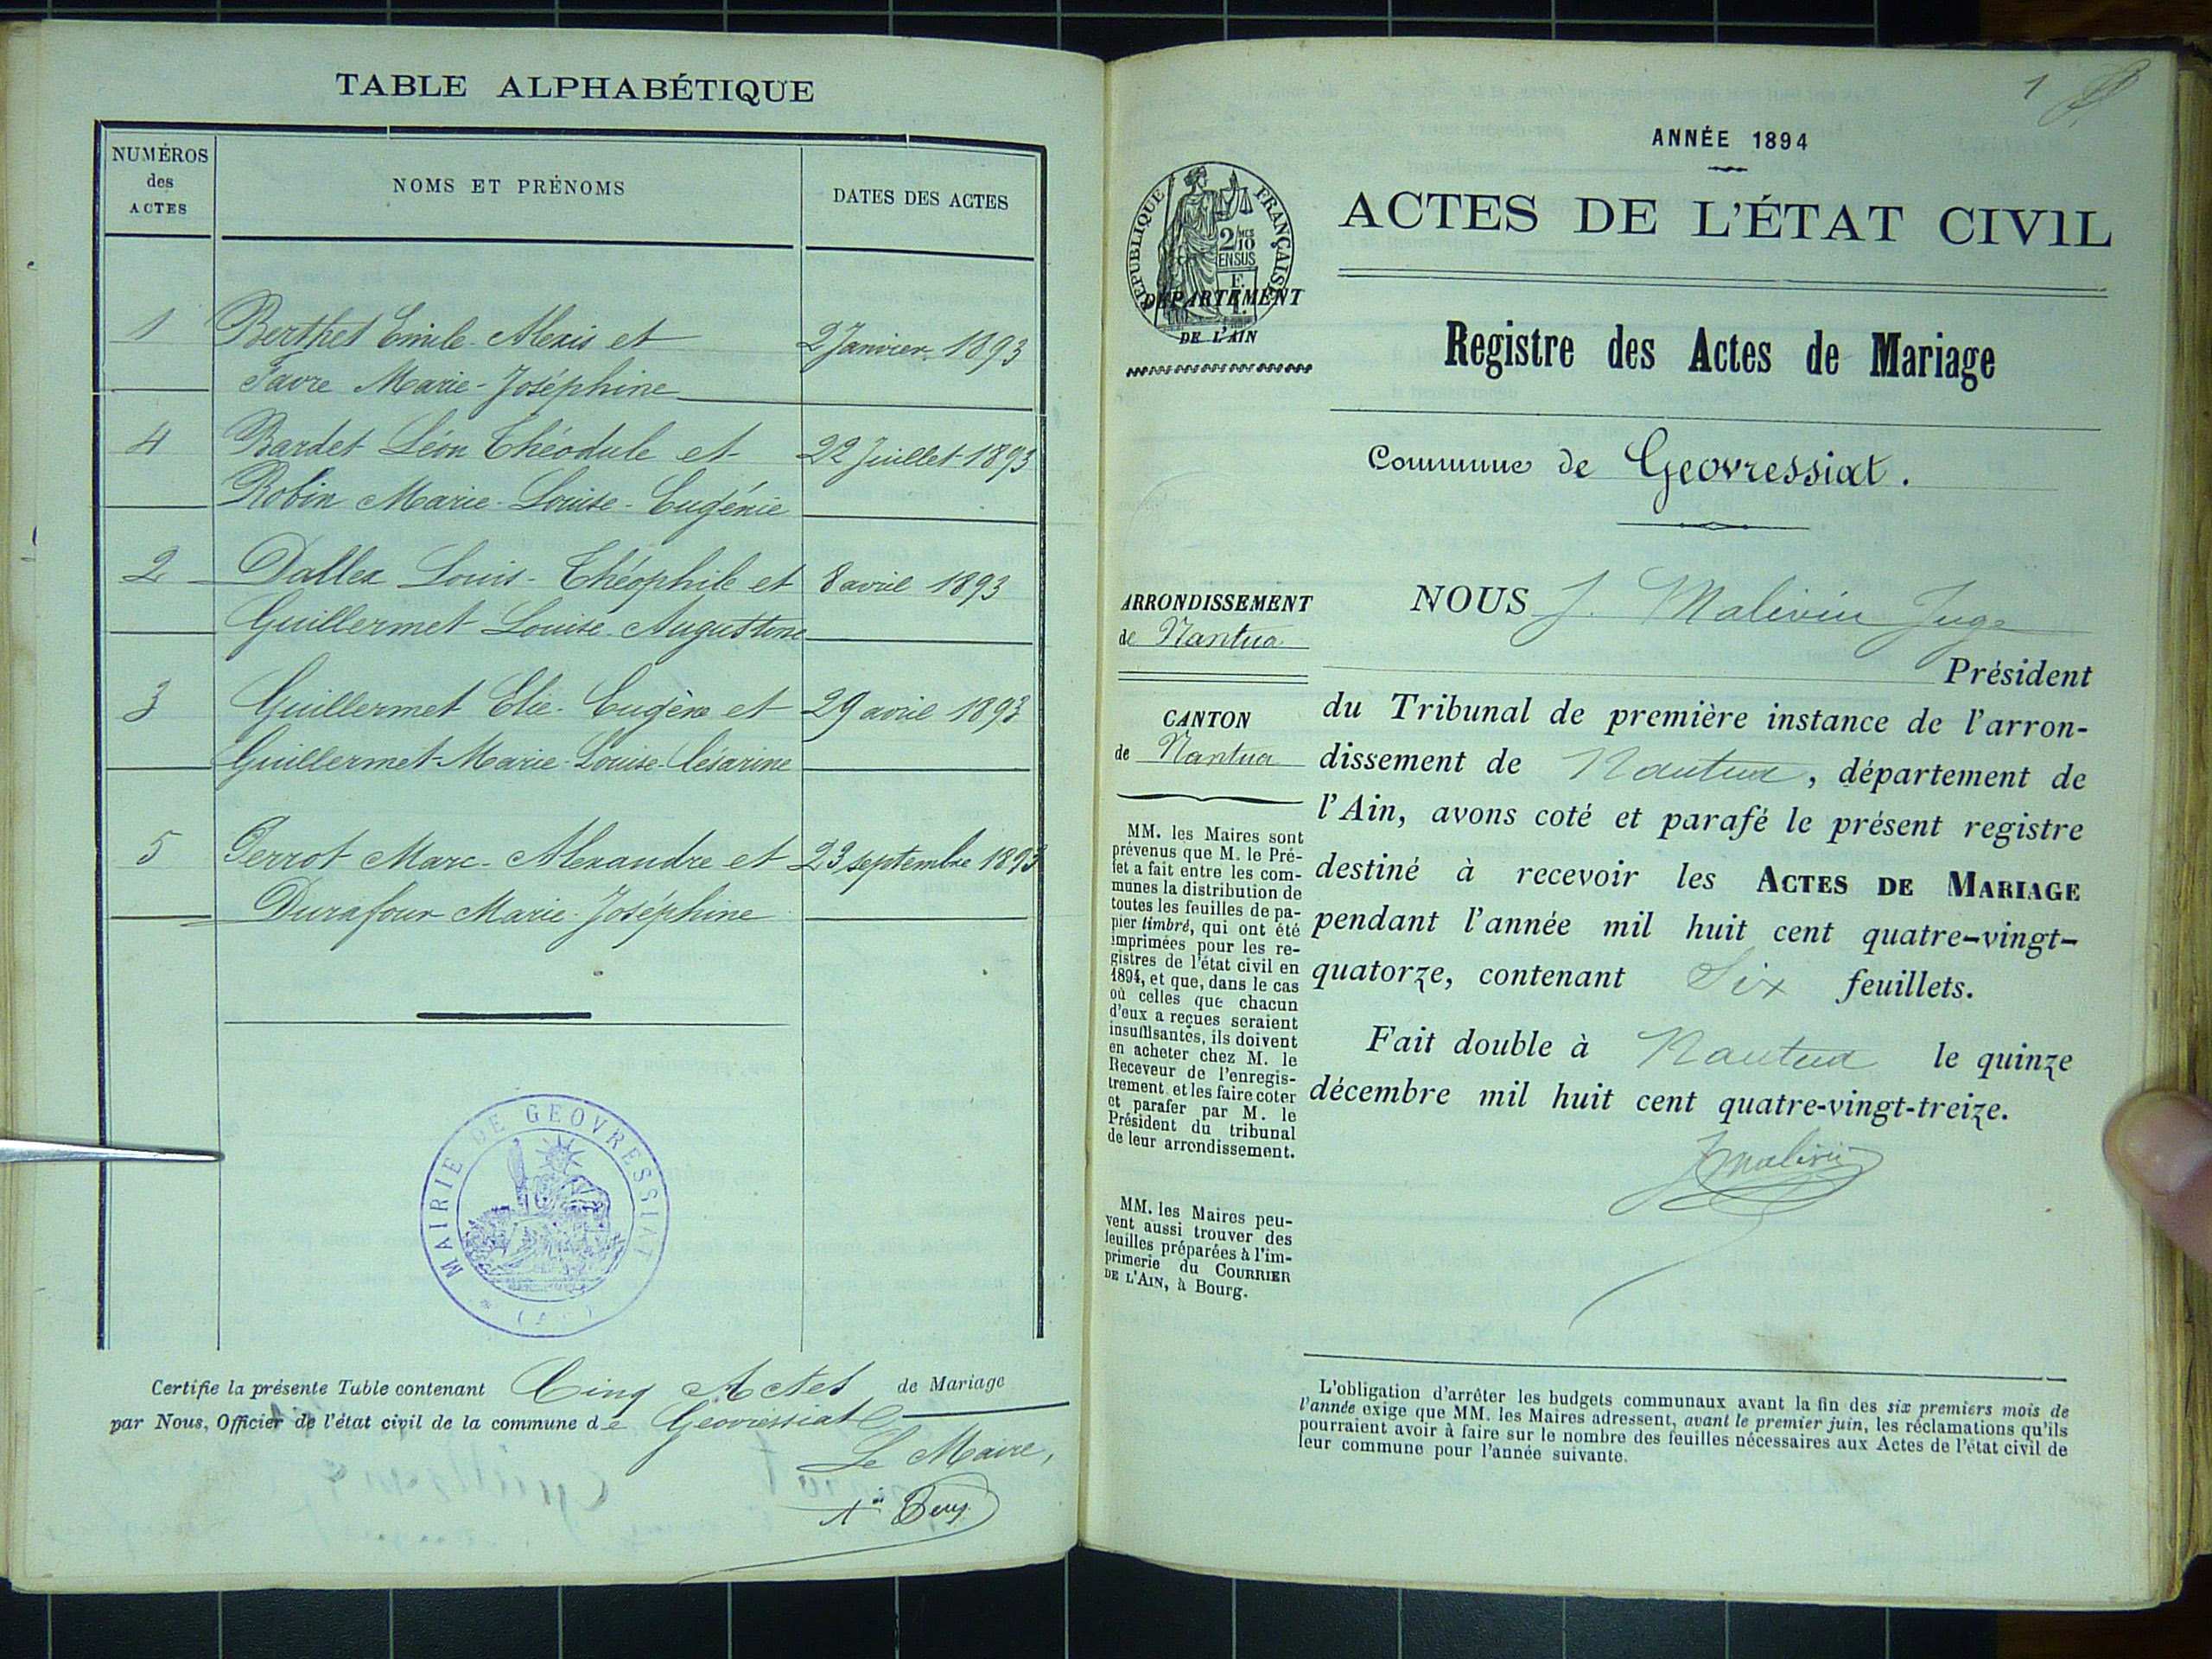 TABLE ALPHABÉTIQUE
NUMÉROS
des
ACTES
NOMS ET PRÉNOMS
DATES DES ACTES
1 Berthet Emile-Alexis et 2 Janvier 1893
Favre Marie-Joséphine
4 Bardet Léon Théodule et 22 Juillet 1893
Robin Marie-Louise-Eugénie
2 Dallex Louis-Théophile et 8 avril 1893
Guillermet Louise Augustine
3 Guillermet Elie-Eugène et 29 avril 1893
Guillermet-Marie-Louise-Césarine
5 Perrot Marc-Alexandre et 23 septembre 1893
Durafour Marie-Joséphine
MAIRIE DE GEOVRESSIAT
Certifie la présente Table contenant Cinq Actes de Mariage
par Nous, Officier de l'état civil de la commune de Géovressiat
Le Maire,
1
ANNÉE 1894
RÉPUBLIQUE FRANÇAISE
2/10
EN SUS
DÉPARTEMENT
DE L'AIN
ACTES DE L'ÉTAT CIVIL
Registre des Actes de Mariage
Commune de Geovressiat.
ARRONDISSEMENT
de Nantua
CANTON
de Nantua
MM. les Maires sont
prévenus que M. le Pré-
fet a fait entre les com-
munes la distribution de
toutes les feuilles de pa-
pier timbré, qui ont été
imprimées pour les re-
gistres de l'état civil en
1894, et que, dans le cas
où celles que chacun
d'eux a reçues seraient
insuffisantes, ils doivent
en acheter chez M. le
Receveur de l'enregis-
trement et les faire coter
et parafer par M. le
Président du tribunal
de leur arrondissement.
MM. les Maires peu-
vent aussi trouver des
feuilles préparées à l'im-
primerie du COURRIER
DE L'AIN, à Bourg.
NOUS J. Malivin Juge
Président
du Tribunal de première instance de l'arron-
dissement de Nantua, département de
l'Ain, avons coté et parafé le présent registre
destiné à recevoir les ACTES DE MARIAGE
pendant l'année mil huit cent quatre-vingt-
quatorze, contenant Six feuillets.
Fait double à Nantua le quinze
décembre mil huit cent quatre-vingt-treize.
JMalivin
L'obligation d'arrêter les budgets communaux avant la fin des six premiers mois de
l'année exige que MM. les Maires adressent, avant le premier juin, les réclamations qu'ils
pourraient avoir à faire sur le nombre des feuilles nécessaires aux Actes de l'état civil de
leur commune pour l'année suivante.